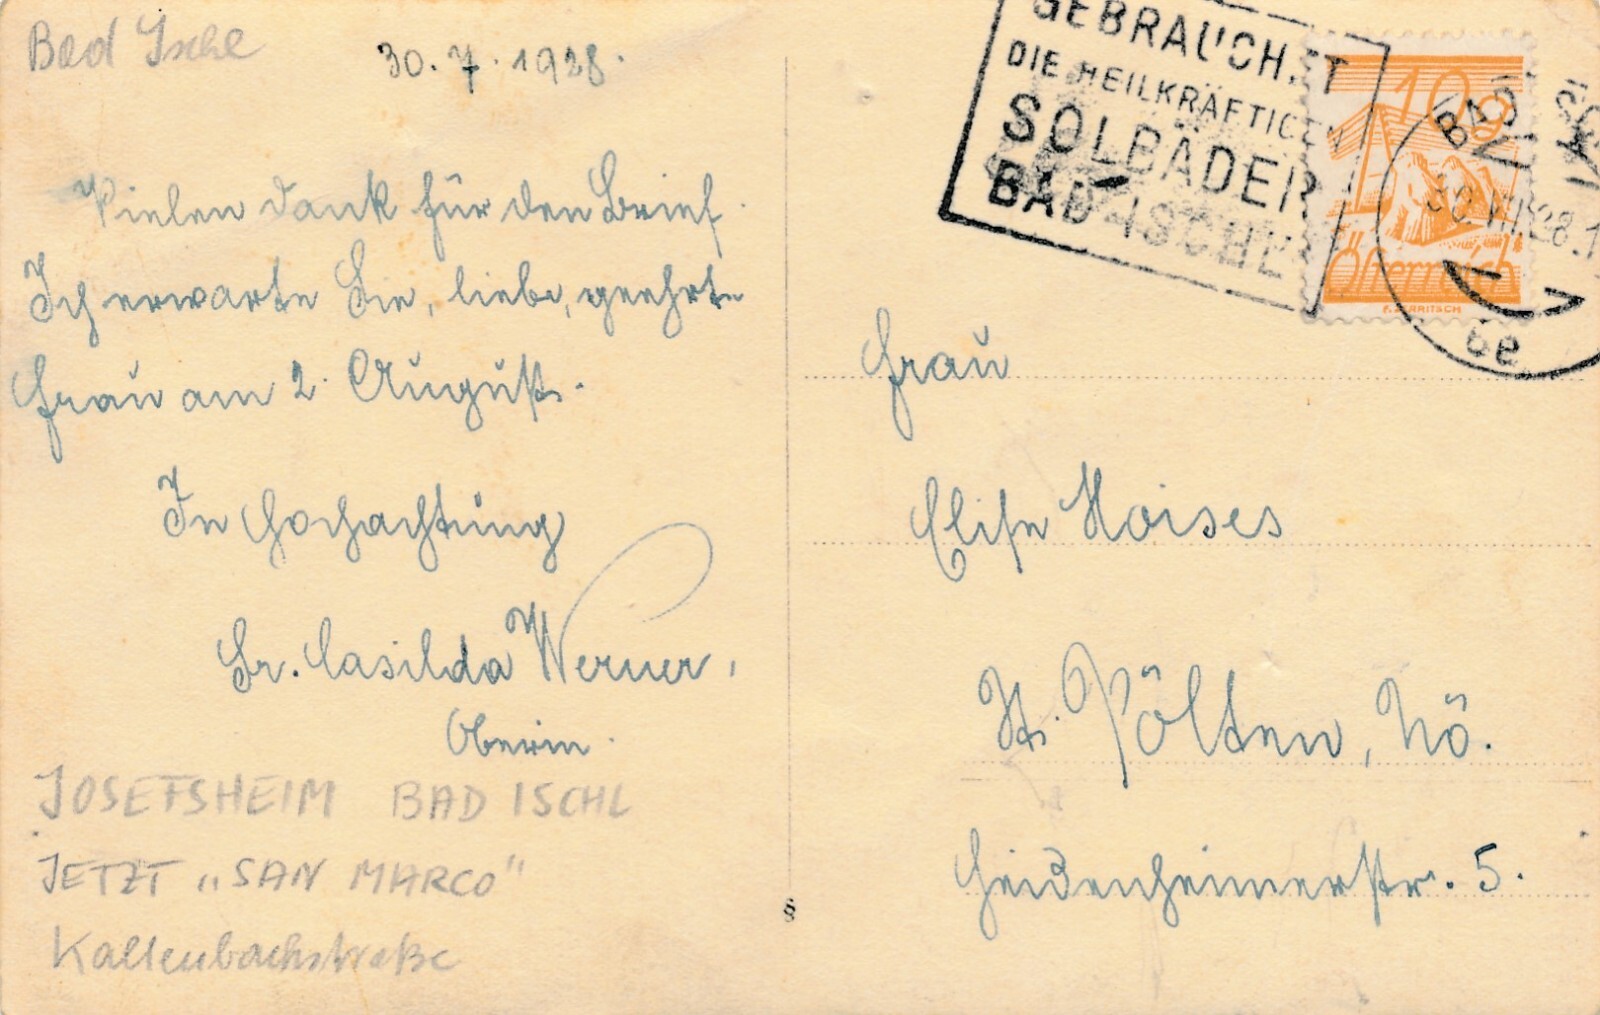 Bad Ischl
30. 7. 1928.
Vielen Dank für den Brief.
Ich erwarte Sie, liebe, geehrte
Frau am 2. August.
In Hochachtung
Sr. Casilda Werner,
Oberin.
JOSEFSHEIM BAD ISCHL
JETZT „SAN MARCO"
Kaltenbachstraße
§
GEBRAUCHET
DIE HEILKRÄFTIGEN
SOLBÄDER
BAD-ISCHL
10g
Österreich
BAD ISCHL
30.VII.28.1
Frau
Elise Moises
St. Pölten, Nö.
Heidenheimerstr. 5.